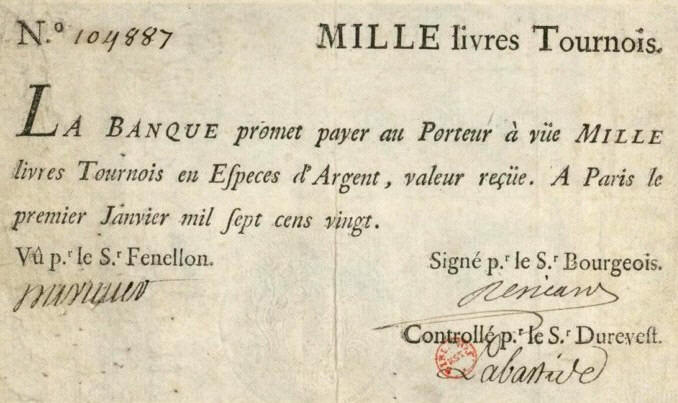 N.º 104887 MILLE livres Tournois.
LA BANQUE promet payer au Porteur à vüe MILLE
livres Tournois en Eſpeces d'Argent, valeur reçüe. A Paris le
premier Janvier mil ſept cens vingt.
Vû p.r le S.r Fenellon. Signé p.r le S.r Bourgeois.
Controllé p.r le S.r Dureveſt.
Labastide